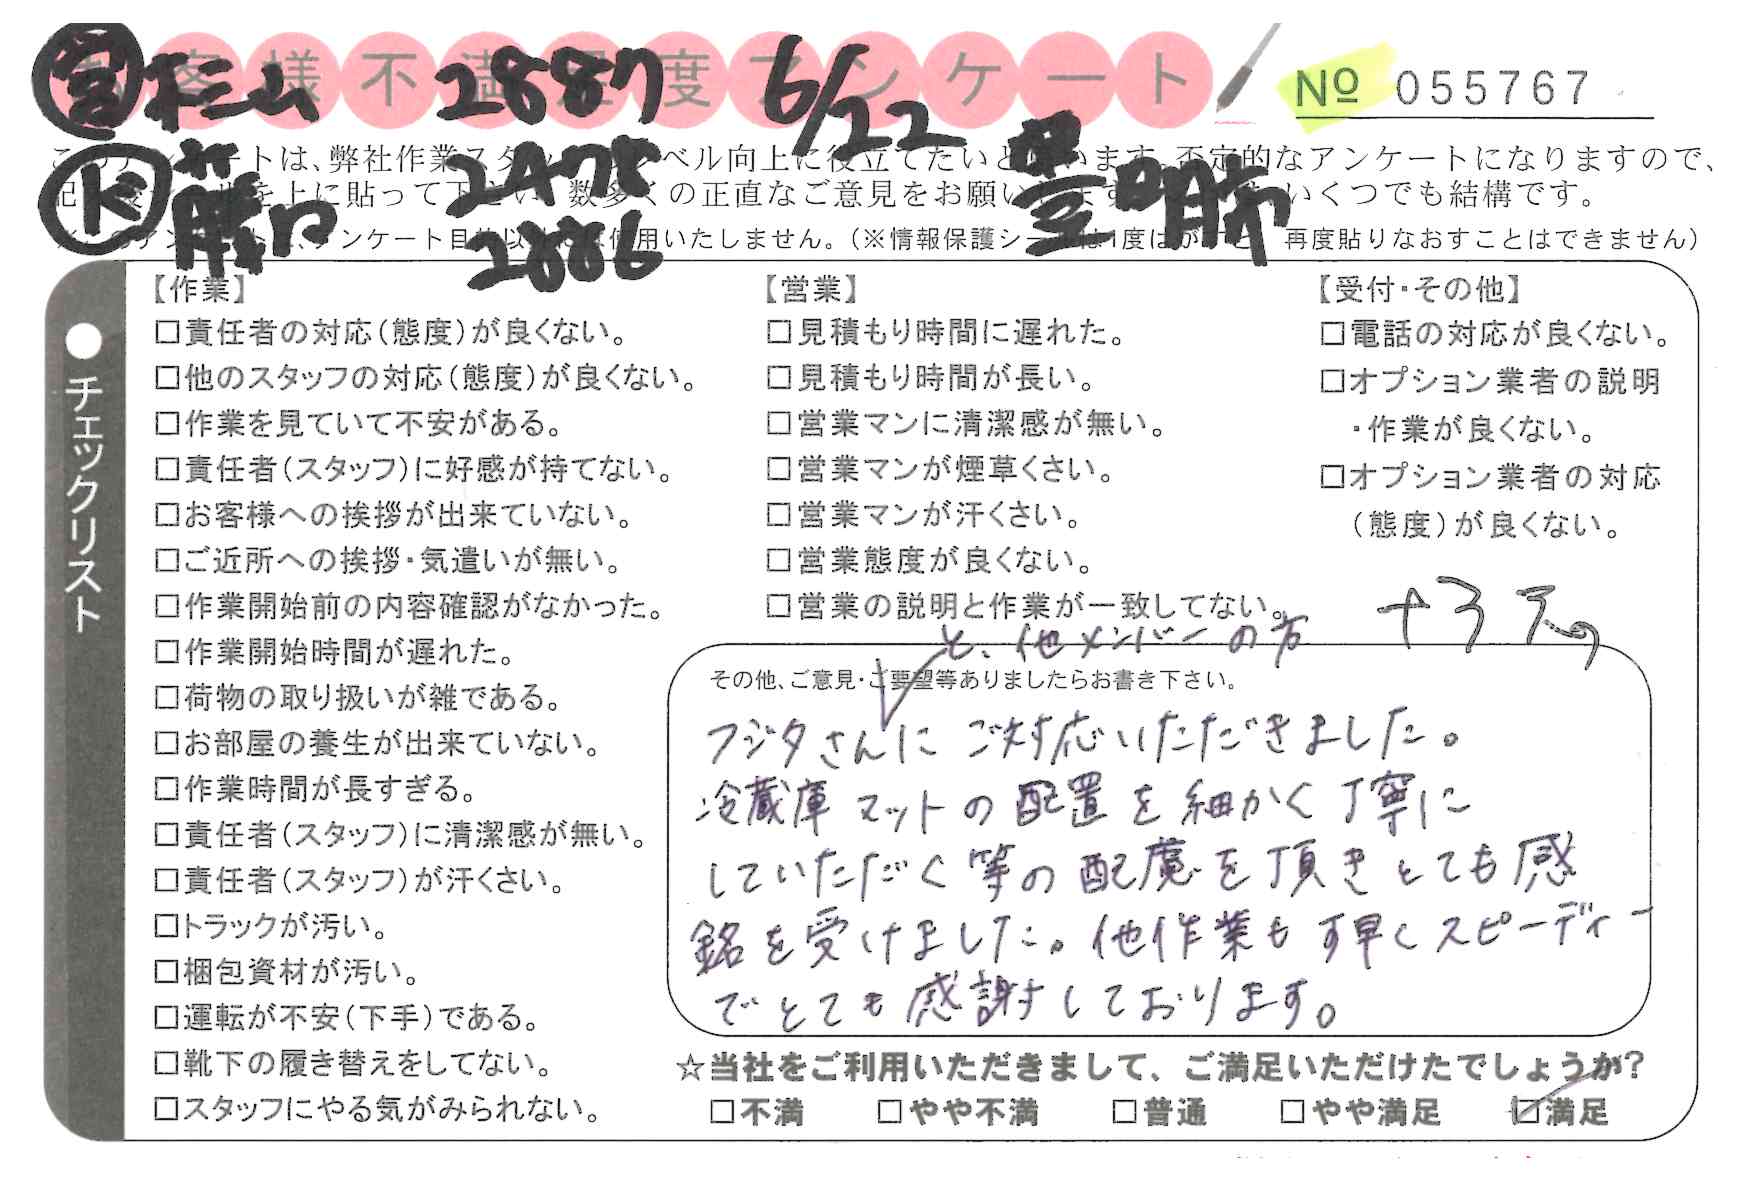 お客様不満足度アンケート
No 055767
営 杉山 2887 6/22
K 藤口 2475 豊明市
2886
このアンケートは、弊社作業スタッフのレベル向上に役立てたいと思います。不定的なアンケートになりますので、
を上に貼って下さい。数多くの正直なご意見をお願いします いくつでも結構です。
アンケート目的以外には使用いたしません。(※情報保護シールは1度はがすと 再度貼りなおすことはできません)
●チェックリスト
【作業】
□責任者の対応(態度)が良くない。
□他のスタッフの対応(態度)が良くない。
□作業を見ていて不安がある。
□責任者(スタッフ)に好感が持てない。
□お客様への挨拶が出来ていない。
□ご近所への挨拶・気遣いが無い。
□作業開始前の内容確認がなかった。
□作業開始時間が遅れた。
□荷物の取り扱いが雑である。
□お部屋の養生が出来ていない。
□作業時間が長すぎる。
□責任者(スタッフ)に清潔感が無い。
□責任者(スタッフ)が汗くさい。
□トラックが汚い。
□梱包資材が汚い。
□運転が不安(下手)である。
□靴下の履き替えをしてない。
□スタッフにやる気がみられない。
【営業】
□見積もり時間に遅れた。
□見積もり時間が長い。
□営業マンに清潔感が無い。
□営業マンが煙草くさい。
□営業マンが汗くさい。
□営業態度が良くない。
□営業の説明と作業が一致してない。
【受付・その他】
□電話の対応が良くない。
□オプション業者の説明
・作業が良くない。
□オプション業者の対応
(態度)が良くない。
と、他メンバーの方
その他、ご意見・ご要望等ありましたらお書き下さい。
フジタさんにご対応いただきました。
冷蔵庫マットの配置を細かく丁寧に
していただく等の配慮を頂きとても感
銘を受けました。他作業もす早くスピーディー
でとても感謝しております。
☆当社をご利用いただきまして、ご満足いただけたでしょうか?
□不満 □やや不満 □普通 □やや満足 ☑満足